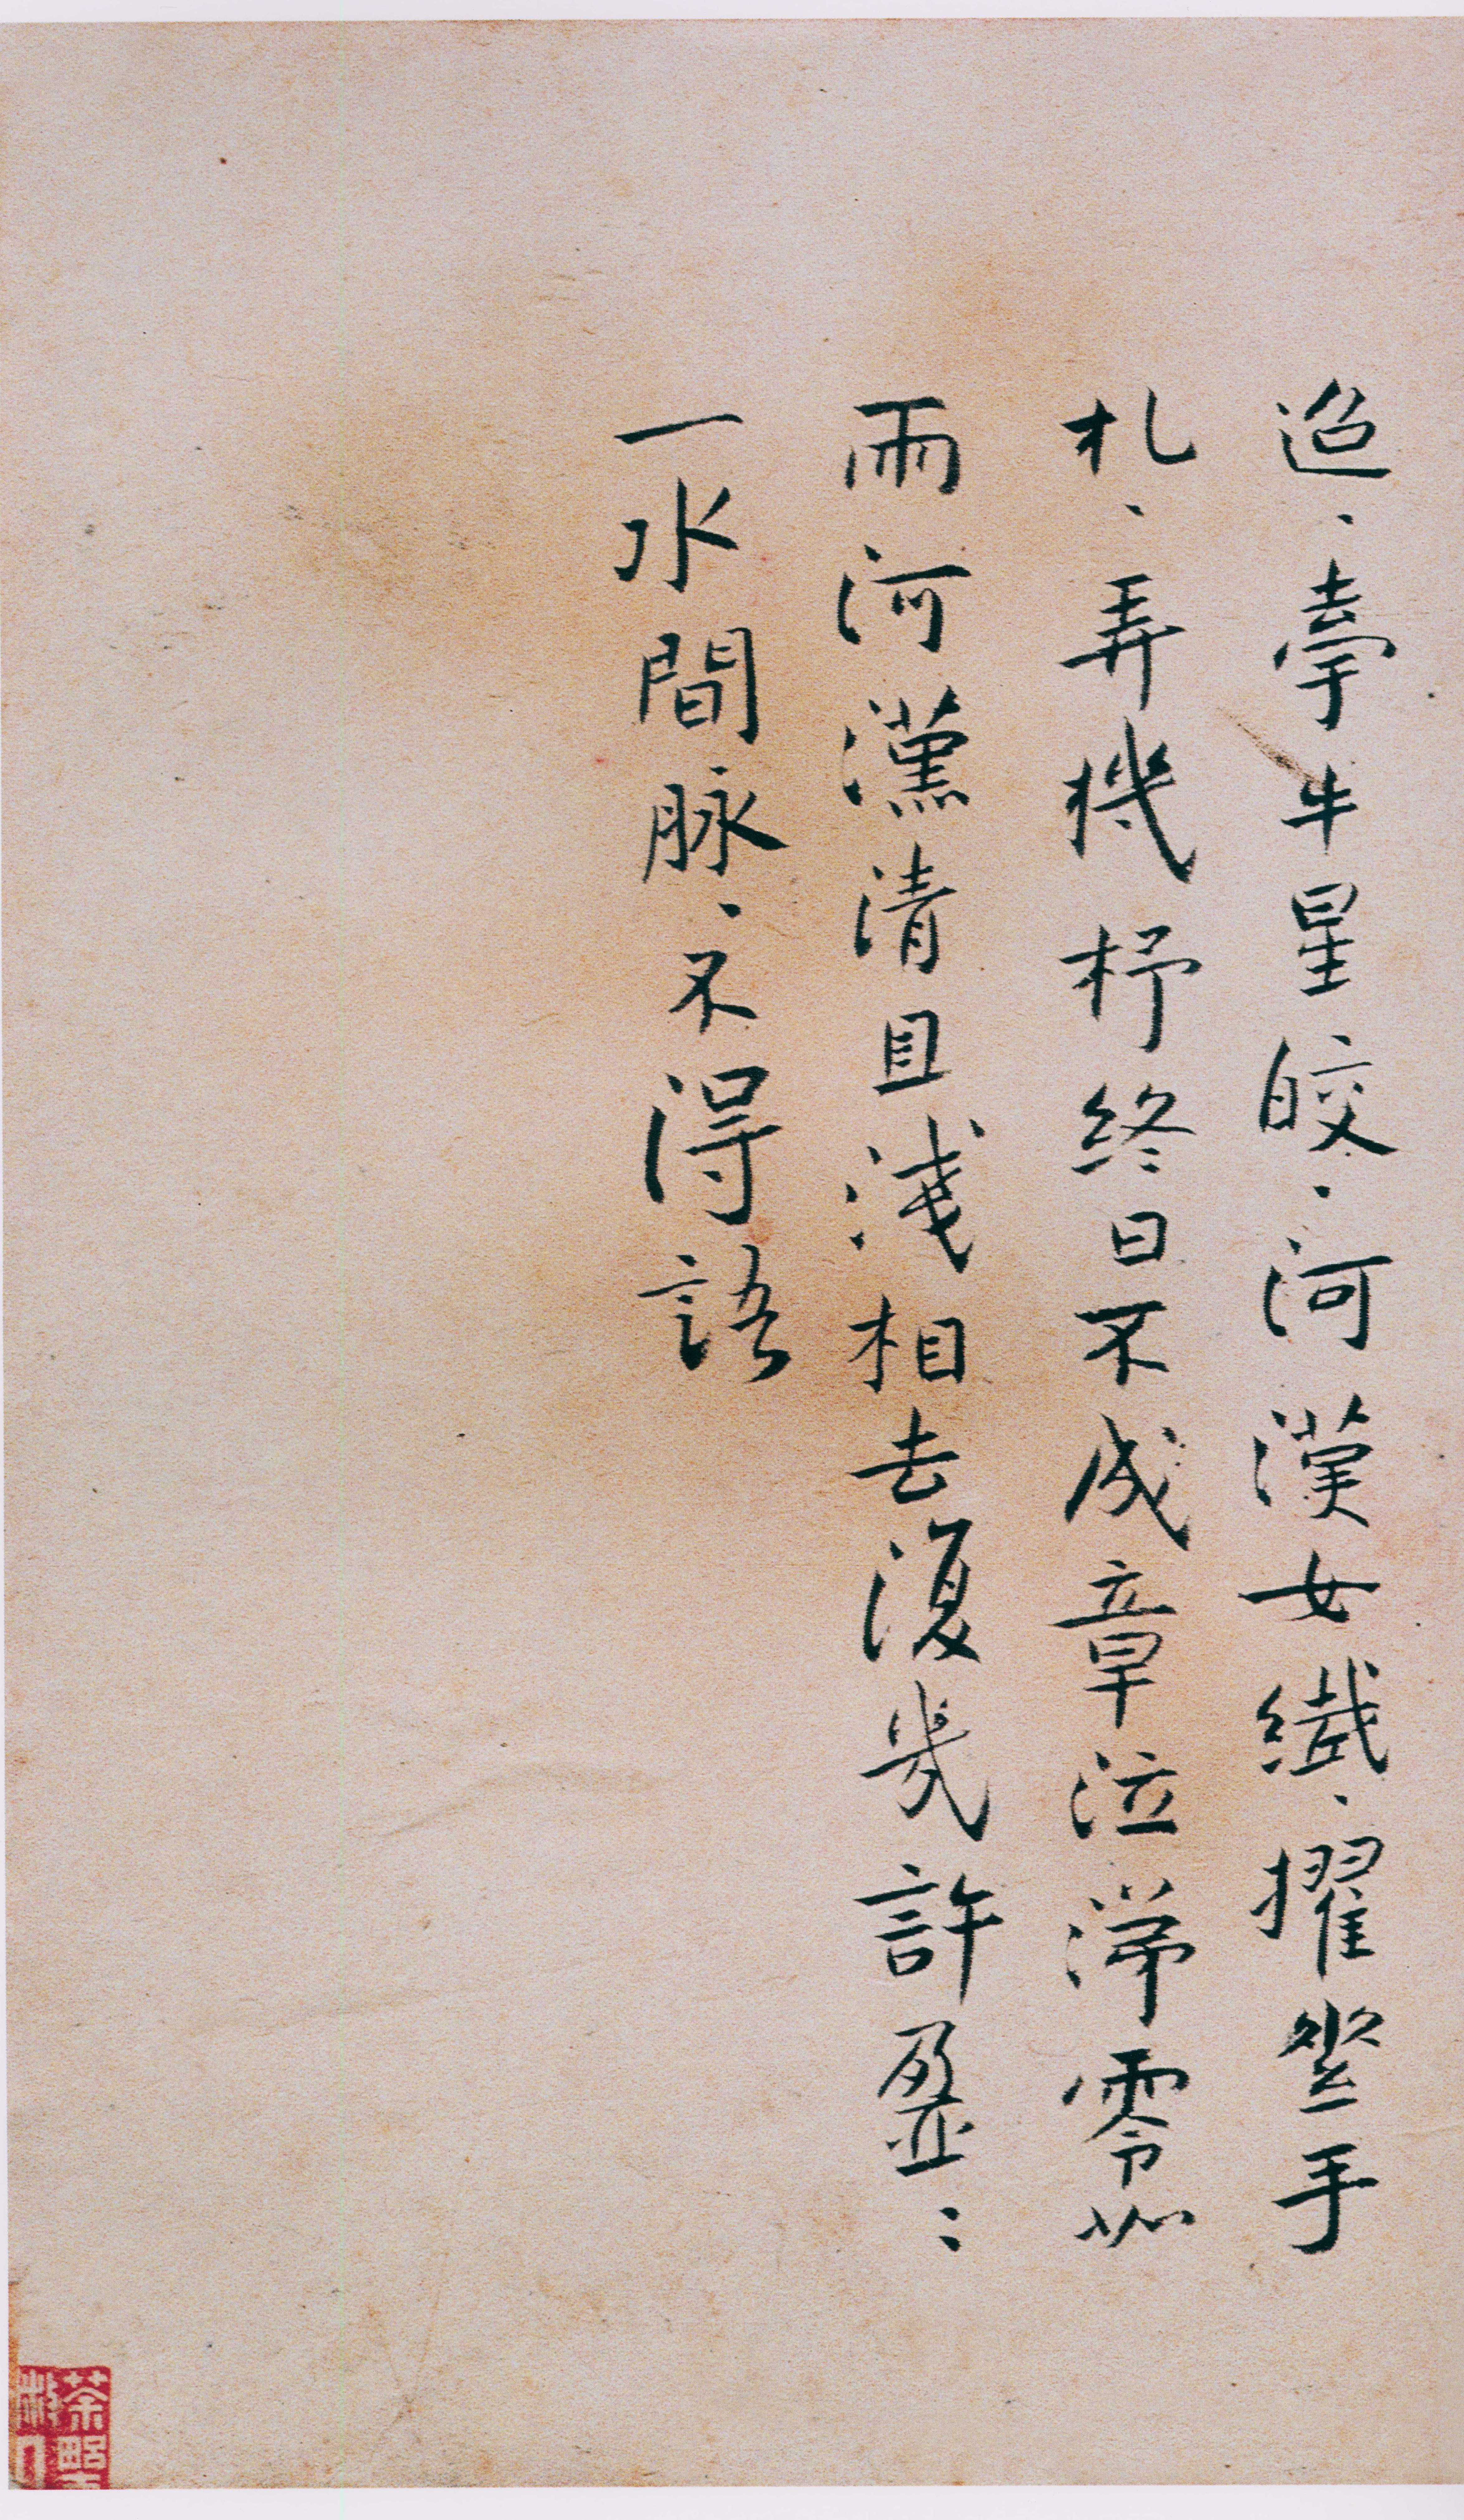 迢、牽牛星皎、河漢女纖、擢素手
札、弄機杼終日不成章泣涕零如
雨河漢清且淺相去復幾許盈：
一水間脉、不得語